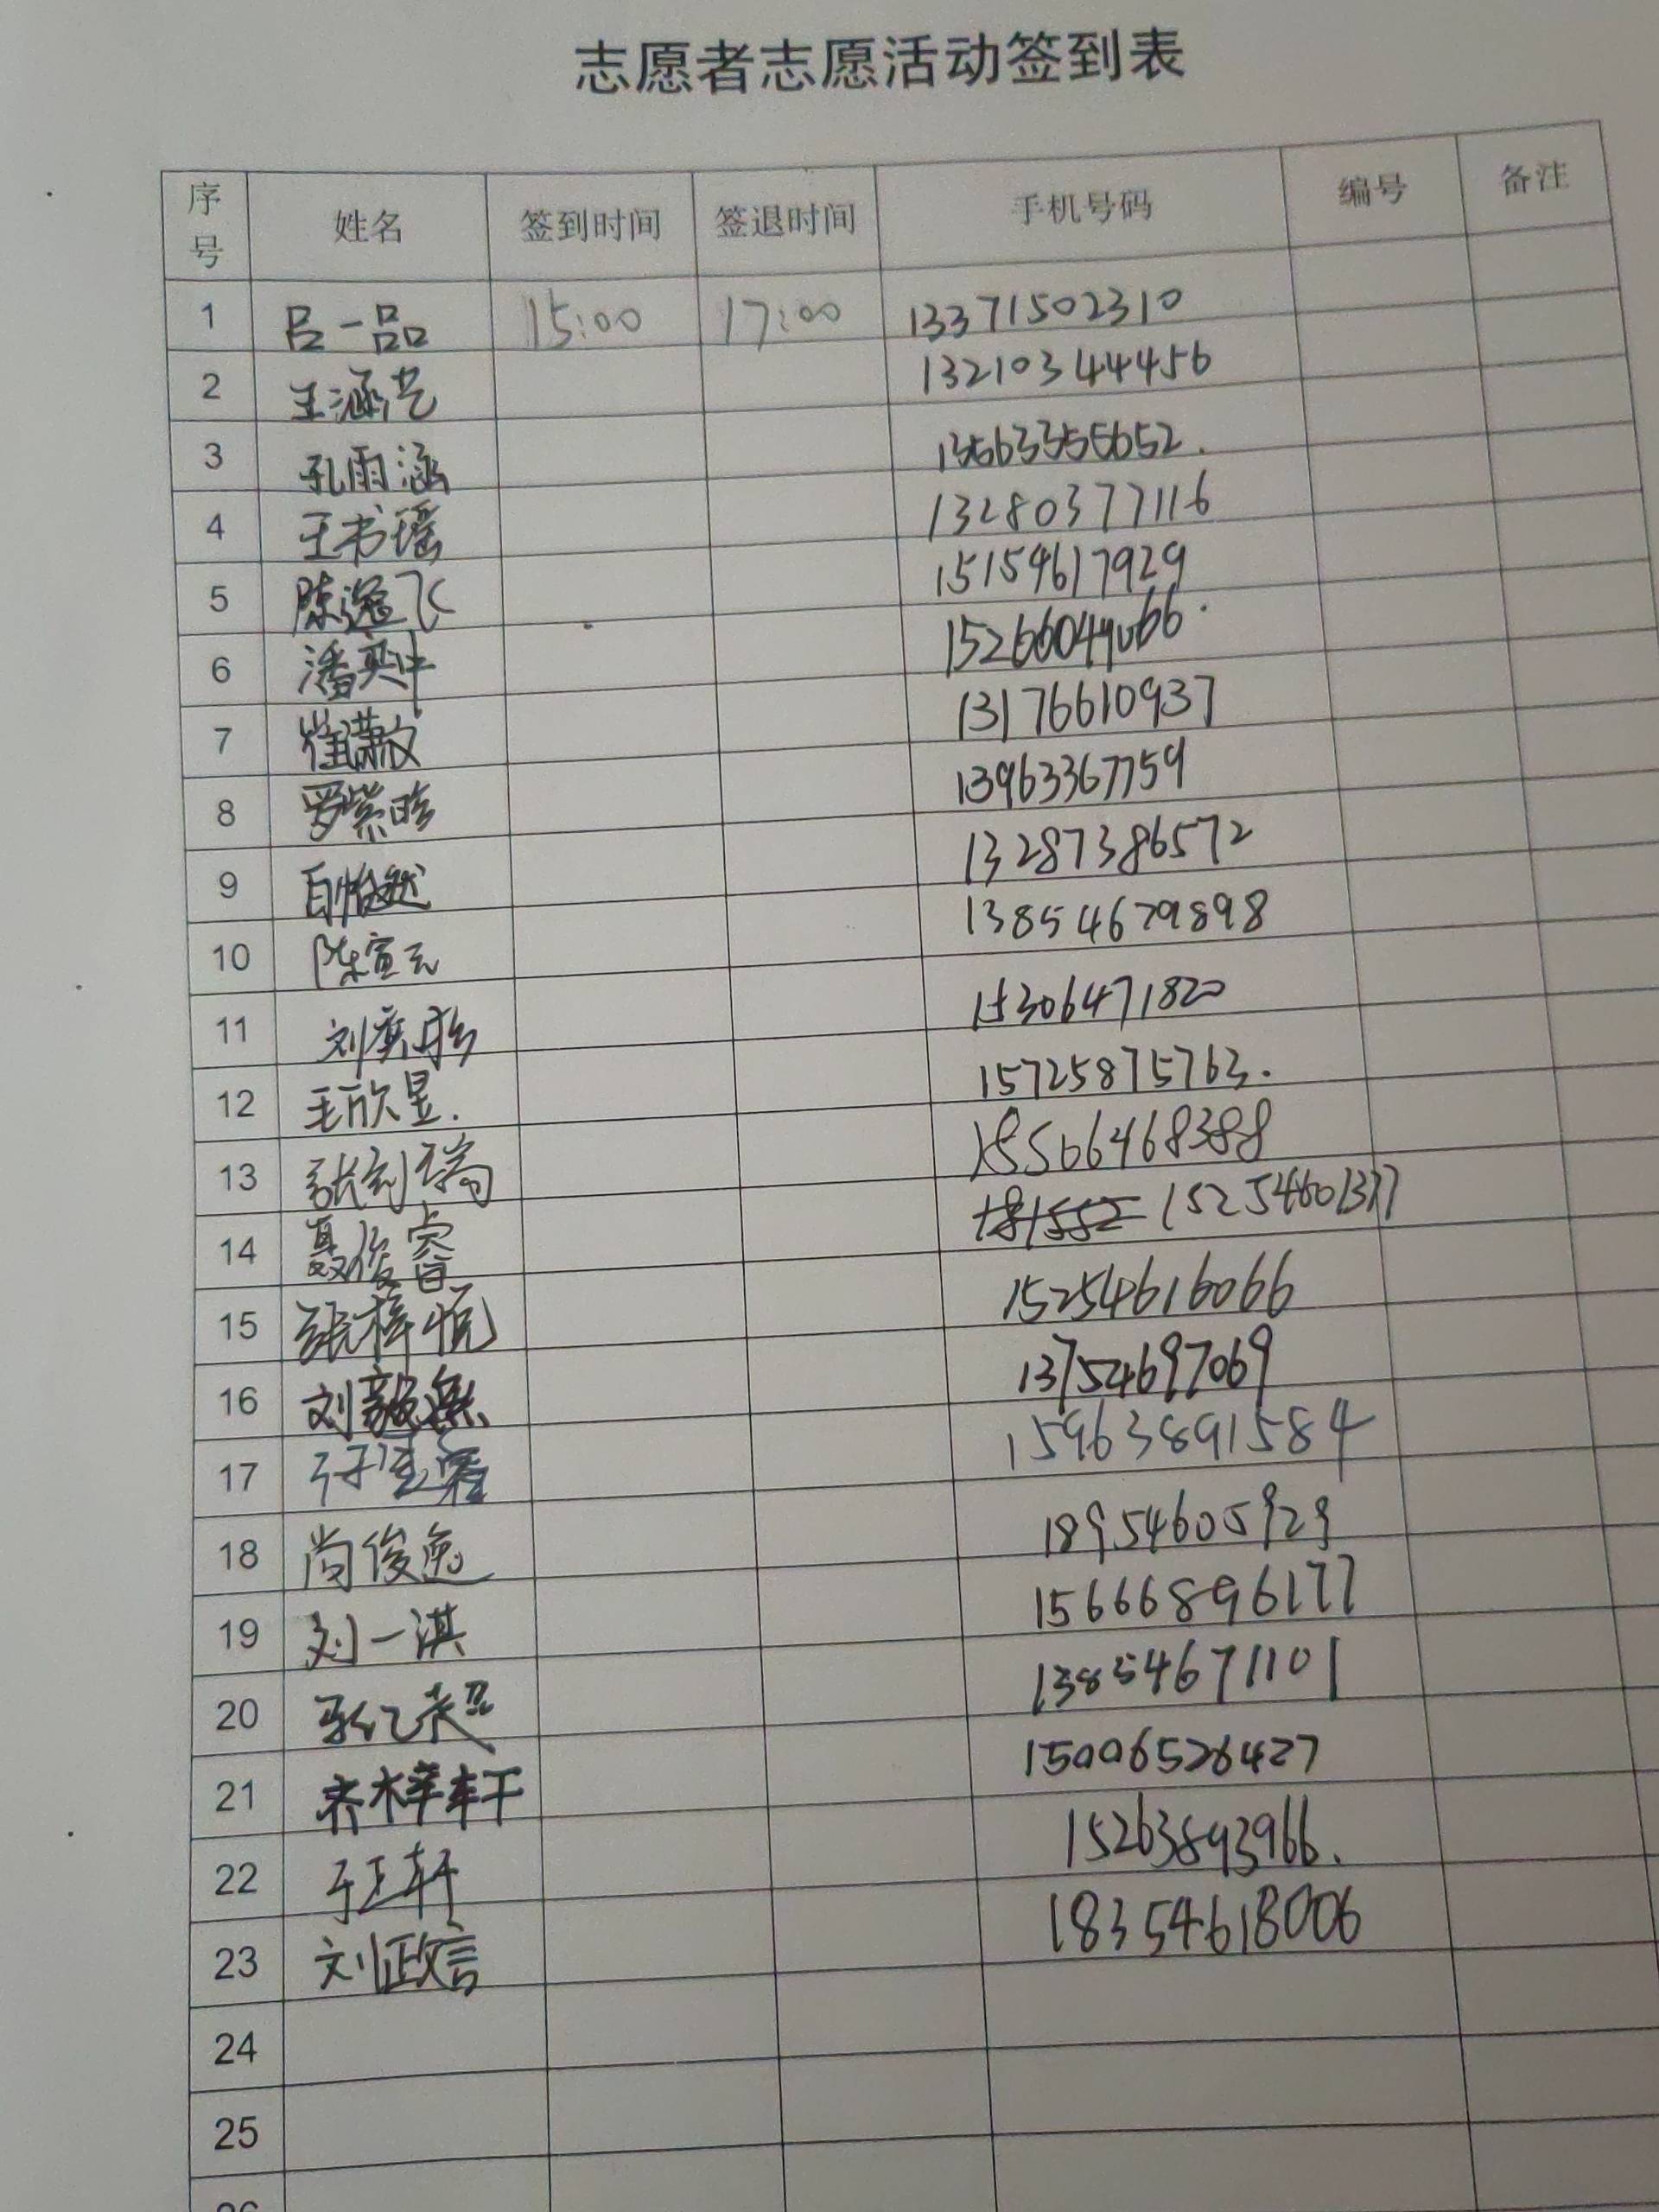 志愿者志愿活动签到表
序号 姓名 签到时间 签退时间 手机号码 编号 备注
1 吕一品 15:00 17:00 13371502310
2 王涵艺 13210344456
3 孔雨涵 13563355652.
4 王书瑶 13280377116
5 陈逸飞 15154617929
6 潘奕中 15266049066.
7 崔潇文 13176610937
8 罗紫晗 13963367759
9 白怡然 13287386572
10 陈宣元 13854679898
11 刘奕彤 15306471820
12 王欣昱. 15725875763.
13 张刘瑞 18566468388
14 聂俊睿 15254601377
15 张梓悦 15254616066
16 刘毅 13754697069
17 15963891584
18 尚俊逸 18954605929
19 刘一淇 15666896177
20 亿超 13854671101
21 齐梓轩 15006526427
22 于正轩 15263893966.
23 刘政言 18354618006
24
25
26